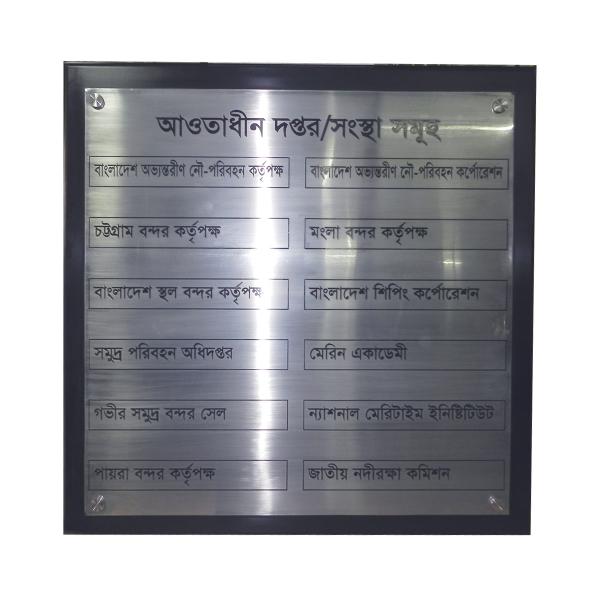 আওতাধীন দপ্তর/সংস্থা সমূহ
বাংলাদেশ অভ্যন্তরীণ নৌ-পরিবহন কর্তৃপক্ষ
বাংলাদেশ অভ্যন্তরীণ নৌ-পরিবহন কর্পোরেশন
চট্টগ্রাম বন্দর কর্তৃপক্ষ
মংলা বন্দর কর্তৃপক্ষ
বাংলাদেশ স্থল বন্দর কর্তৃপক্ষ
বাংলাদেশ শিপিং কর্পোরেশন
সমুদ্র পরিবহন অধিদপ্তর
মেরিন একাডেমী
গভীর সমুদ্র বন্দর সেল
ন্যাশনাল মেরিটাইম ইনিষ্টিটিউট
পায়রা বন্দর কর্তৃপক্ষ
জাতীয় নদীরক্ষা কমিশন